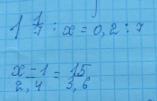 1 1/7 : x = 0,2 : 7
x-1/2,4 = 15/3,6